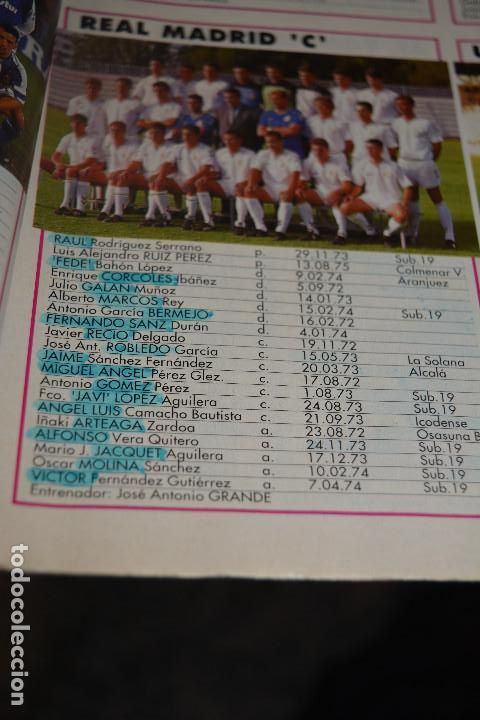 REAL MADRID 'C'
RAUL Rodríguez Serrano p. 29.11.73 Sub.19
Luis Alejandro RUIZ PEREZ p. 13.08.75 Colmenar V.
'FEDE' Bahón López d. 9.02.74 Aranjuez
Enrique CORCOLES Ibáñez d. 5.09.72
Julio GALAN Muñoz d. 14.01.73
Alberto MARCOS Rey d. 15.02.74 Sub.19
Antonio García BERMEJO d. 16.02.72
FERNANDO SANZ Durán d. 4.01.74
Javier RECIO Delgado c. 19.11.72
José Ant. ROBLEDO García c. 15.05.73 La Solana
JAIME Sánchez Fernández c. 20.03.73 Alcalá
MIGUEL ANGEL Pérez Glez. c. 17.08.72
Antonio GOMEZ Pérez c. 1.08.73 Sub.19
Fco. 'JAVI' LOPEZ Aguilera c. 24.08.73 Sub.19
ANGEL LUIS Camacho Bautista c. 21.09.73 Icodense
Iñaki ARTEAGA Zardoa a. 23.08.72 Osasuna B
ALFONSO Vera Quitero a. 24.11.73 Sub.19
Mario J. JACQUET Aguilera a. 17.12.73 Sub.19
Oscar MOLINA Sánchez a. 10.02.74 Sub.19
VICTOR Fernández Gutiérrez a. 7.04.74 Sub.19
Entrenador: José Antonio GRANDE
todocoleccion.net